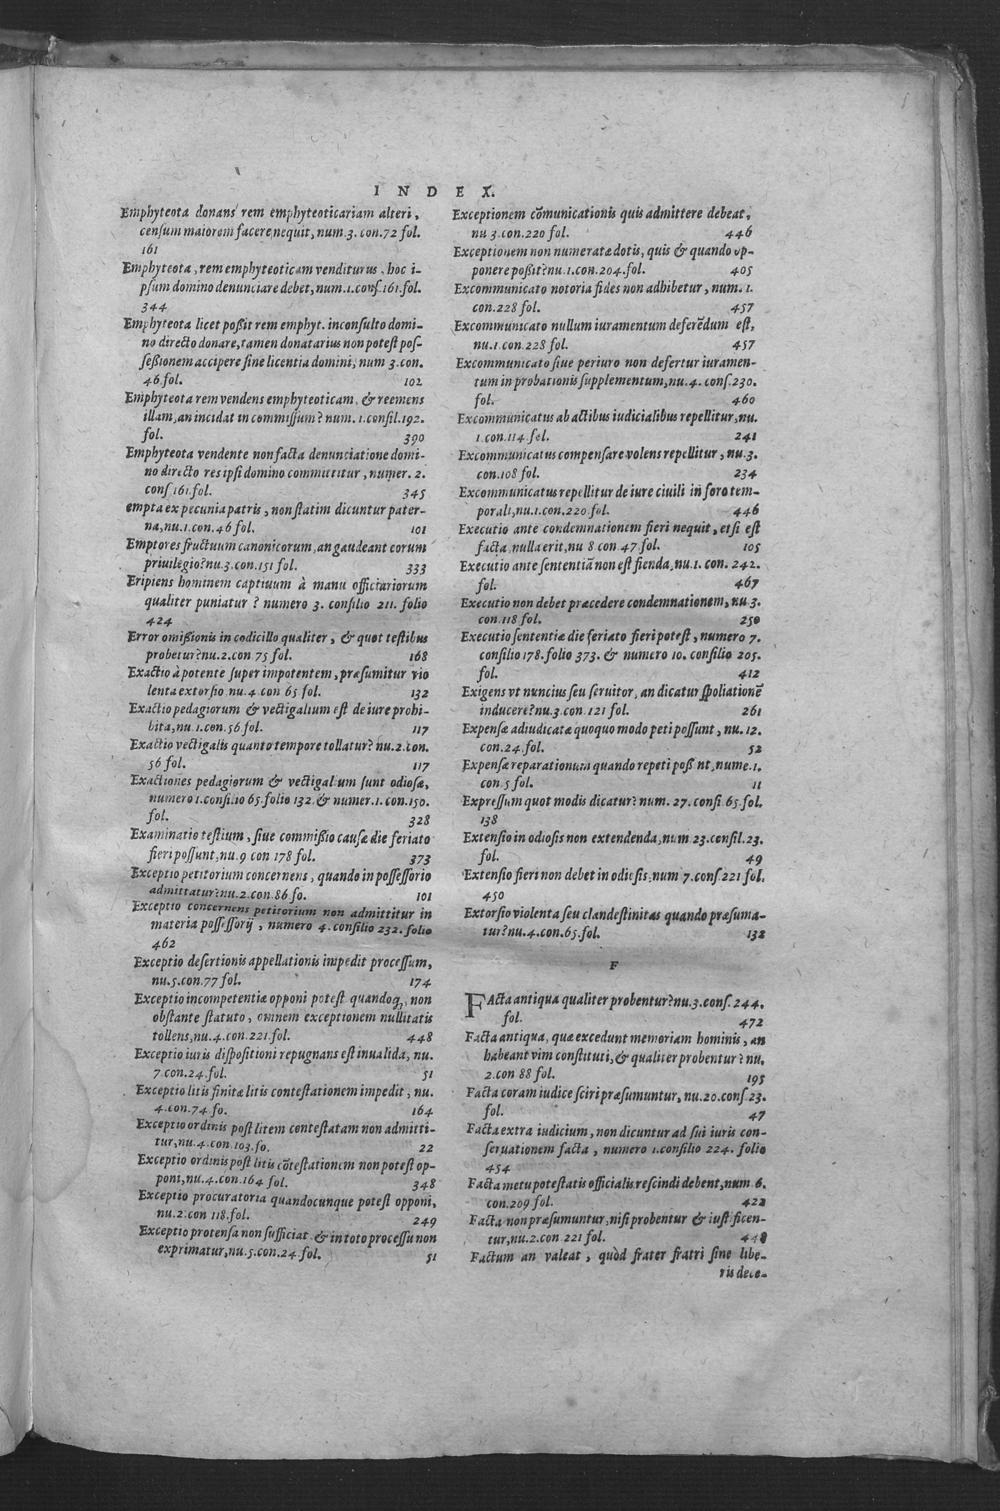 INDEX.
Emphyteota donans rem emphyteoticariam alteri,
censum maiorem facere nequit, num.3. con.72 fol.
161
Emphyteota, rem emphyteoticam venditurus, hoc i-
psum domino denunciare debet, num.1.conſ.161.fol.
344
Emphyteota licet poßit rem emphyt. inconſulto domi-
no directo donare, tamen donatarius non poteſt poſ-
ſeßionem accipere ſine licentia domini, num 3.con.
46.fol. 102
Emphyteota rem vendens emphyteoticam, & reemens
illam, an incidat in commiſſum? num. 1.conſil.192.
fol. 390
Emphyteota vendente non facta denunciatione domi-
no directo res ipſi domino committitur, numer. 2.
conſ 161.fol. 345
empta ex pecunia patris, non ſtatim dicuntur pater-
na, nu.1.con.46 fol. 101
Emptores fructuum canonicorum, an gaudeant eorum
priuilegio? nu.3.con.151 fol. 333
Eripiens hominem captiuum à manu officiariorum
qualiter puniatur? numero 3. conſilio 211. folio
424
Error omißionis in codicillo qualiter, & quot teſtibus
probetur? nu.2.con 75 fol. 168
Exactio à potente ſuper impotentem, præſumitur vio
lenta extorſio. nu.4. con 65 fol. 132
Exactio pedagiorum & vectigalium eſt de iure prohi-
bita, nu.1.con.56 fol. 117
Exactio vectigalis quanto tempore tollatur? nu.2.con.
56 fol. 117
Exactiones pedagiorum & vectigalium ſunt odioſæ,
numero 1.conſilio 65.folio 132 & numer.1.con.150.
fol. 328
Examinatio teſtium, ſiue commißio cauſæ die feriato
fieri poſſunt, nu.9 con 178 fol. 373
Exceptio petitorium concernens, quando in poſſeſſorio
admittatur? nu.2.con.86 fo. 101
Exceptio concernens petitorium non admittitur in
materia poſſeſſorij, numero 4. conſilio 232. folio
462
Exceptio deſertionis appellationis impedit proceſſum,
nu.5.con.77 fol. 174
Exceptio incompetentiæ opponi poteſt quandoq;, non
obſtante ſtatuto, omnem exceptionem nullitatis
tollens, nu.4.con.221.fol. 448
Exceptio iuris diſpoſitioni repugnans eſt inualida, nu.
7.con.24.fol. 51
Exceptio litis finitæ litis conteſtationem impedit, nu.
4.con.74.fo. 164
Exceptio ordinis poſt litem conteſtatam non admitti-
tur, nu.4.con.103.fo. 22
Exceptio ordinis poſt litis cõteſtationem non poteſt op-
poni, nu.4.con.164 fol. 348
Exceptio procuratoria quandocunque poteſt opponi,
nu.2.con 118.fol. 249
Exceptio protenſa non ſufficiat & in toto proceſſu non
exprimatur, nu.5.con.24.fol. 51
Exceptionem cõmunicationis quis admittere debeat,
nu 3.con.220 fol. 446
Exceptionem non numeratæ dotis, quis & quando op-
ponere poßit? nu.1.con.204.fol. 405
Excommunicato notoria fides non adhibetur, num. 1.
con.228 fol. 457
Excommunicato nullum iuramentum deferẽdum eſt,
nu.1.con.228 fol. 457
Excommunicato ſiue periuro non defertur iuramen-
tum in probationis ſupplementum, nu.4. conſ.230.
fol. 460
Excommunicatus ab actibus iudicialibus repellitur, nu.
1.con.114.fol. 241
Excommunicatus compenſare volens repellitur, nu.3.
con.108 fol. 234
Excommunicatus repellitur de iure ciuili in foro tem-
porali, nu.1.con.220.fol. 446
Executio ante condemnationem fieri nequit, etſi eſt
facta, nulla erit, nu 8 con 47.fol. 105
Executio ante ſententiã non eſt fienda, nu.1. con. 242.
fol. 467
Executio non debet præcedere condemnationem, nu.3.
con.118 fol. 250
Executio ſententiæ die feriato fieri poteſt, numero 7.
conſilio 178. folio 373. & numero 10. conſilio 205.
fol. 412
Exigens vt nuncius ſeu ſeruitor, an dicatur ſpoliationẽ
inducere? nu.3.con.121 fol. 261
Expenſæ adiudicatæ quoquo modo peti poſſunt, nu. 12.
con.24.fol. 52
Expenſæ reparationum quando repeti poß nt, nume.1.
con.5 fol. 11
Expreſſum quot modis dicatur? num. 27.conſi 65.fol.
138
Extenſio in odioſis non extendenda, num 23.conſil.23.
fol. 49
Extenſio fieri non debet in odioſis, num 7.conſ.221 fol.
450
Extorſio violenta ſeu clandeſtinitas quando præſuma-
tur? nu.4.con.65.fol. 132
F
FActa antiqua qualiter probentur? nu.3.conſ. 244.
fol. 472
Facta antiqua, quæ excedunt memoriam hominis, an
habeant vim conſtituti, & qualiter probentur? nu.
2.con 88 fol. 195
Facta coram iudice ſciri præſumuntur, nu.20.conſ 23.
fol. 47
Facta extra iudicium, non dicuntur ad ſui iuris con-
ſeruationem facta, numero 1.conſilio 224. folio
454
Facta metu poteſtatis officialis reſcindi debent, num 6.
con.209 fol. 422
Facta non præſumuntur, niſi probentur & iuſtificen-
tur, nu.2.con 221 fol. 448
Factum an valeat, quòd frater fratri ſine libe-
ris dece-